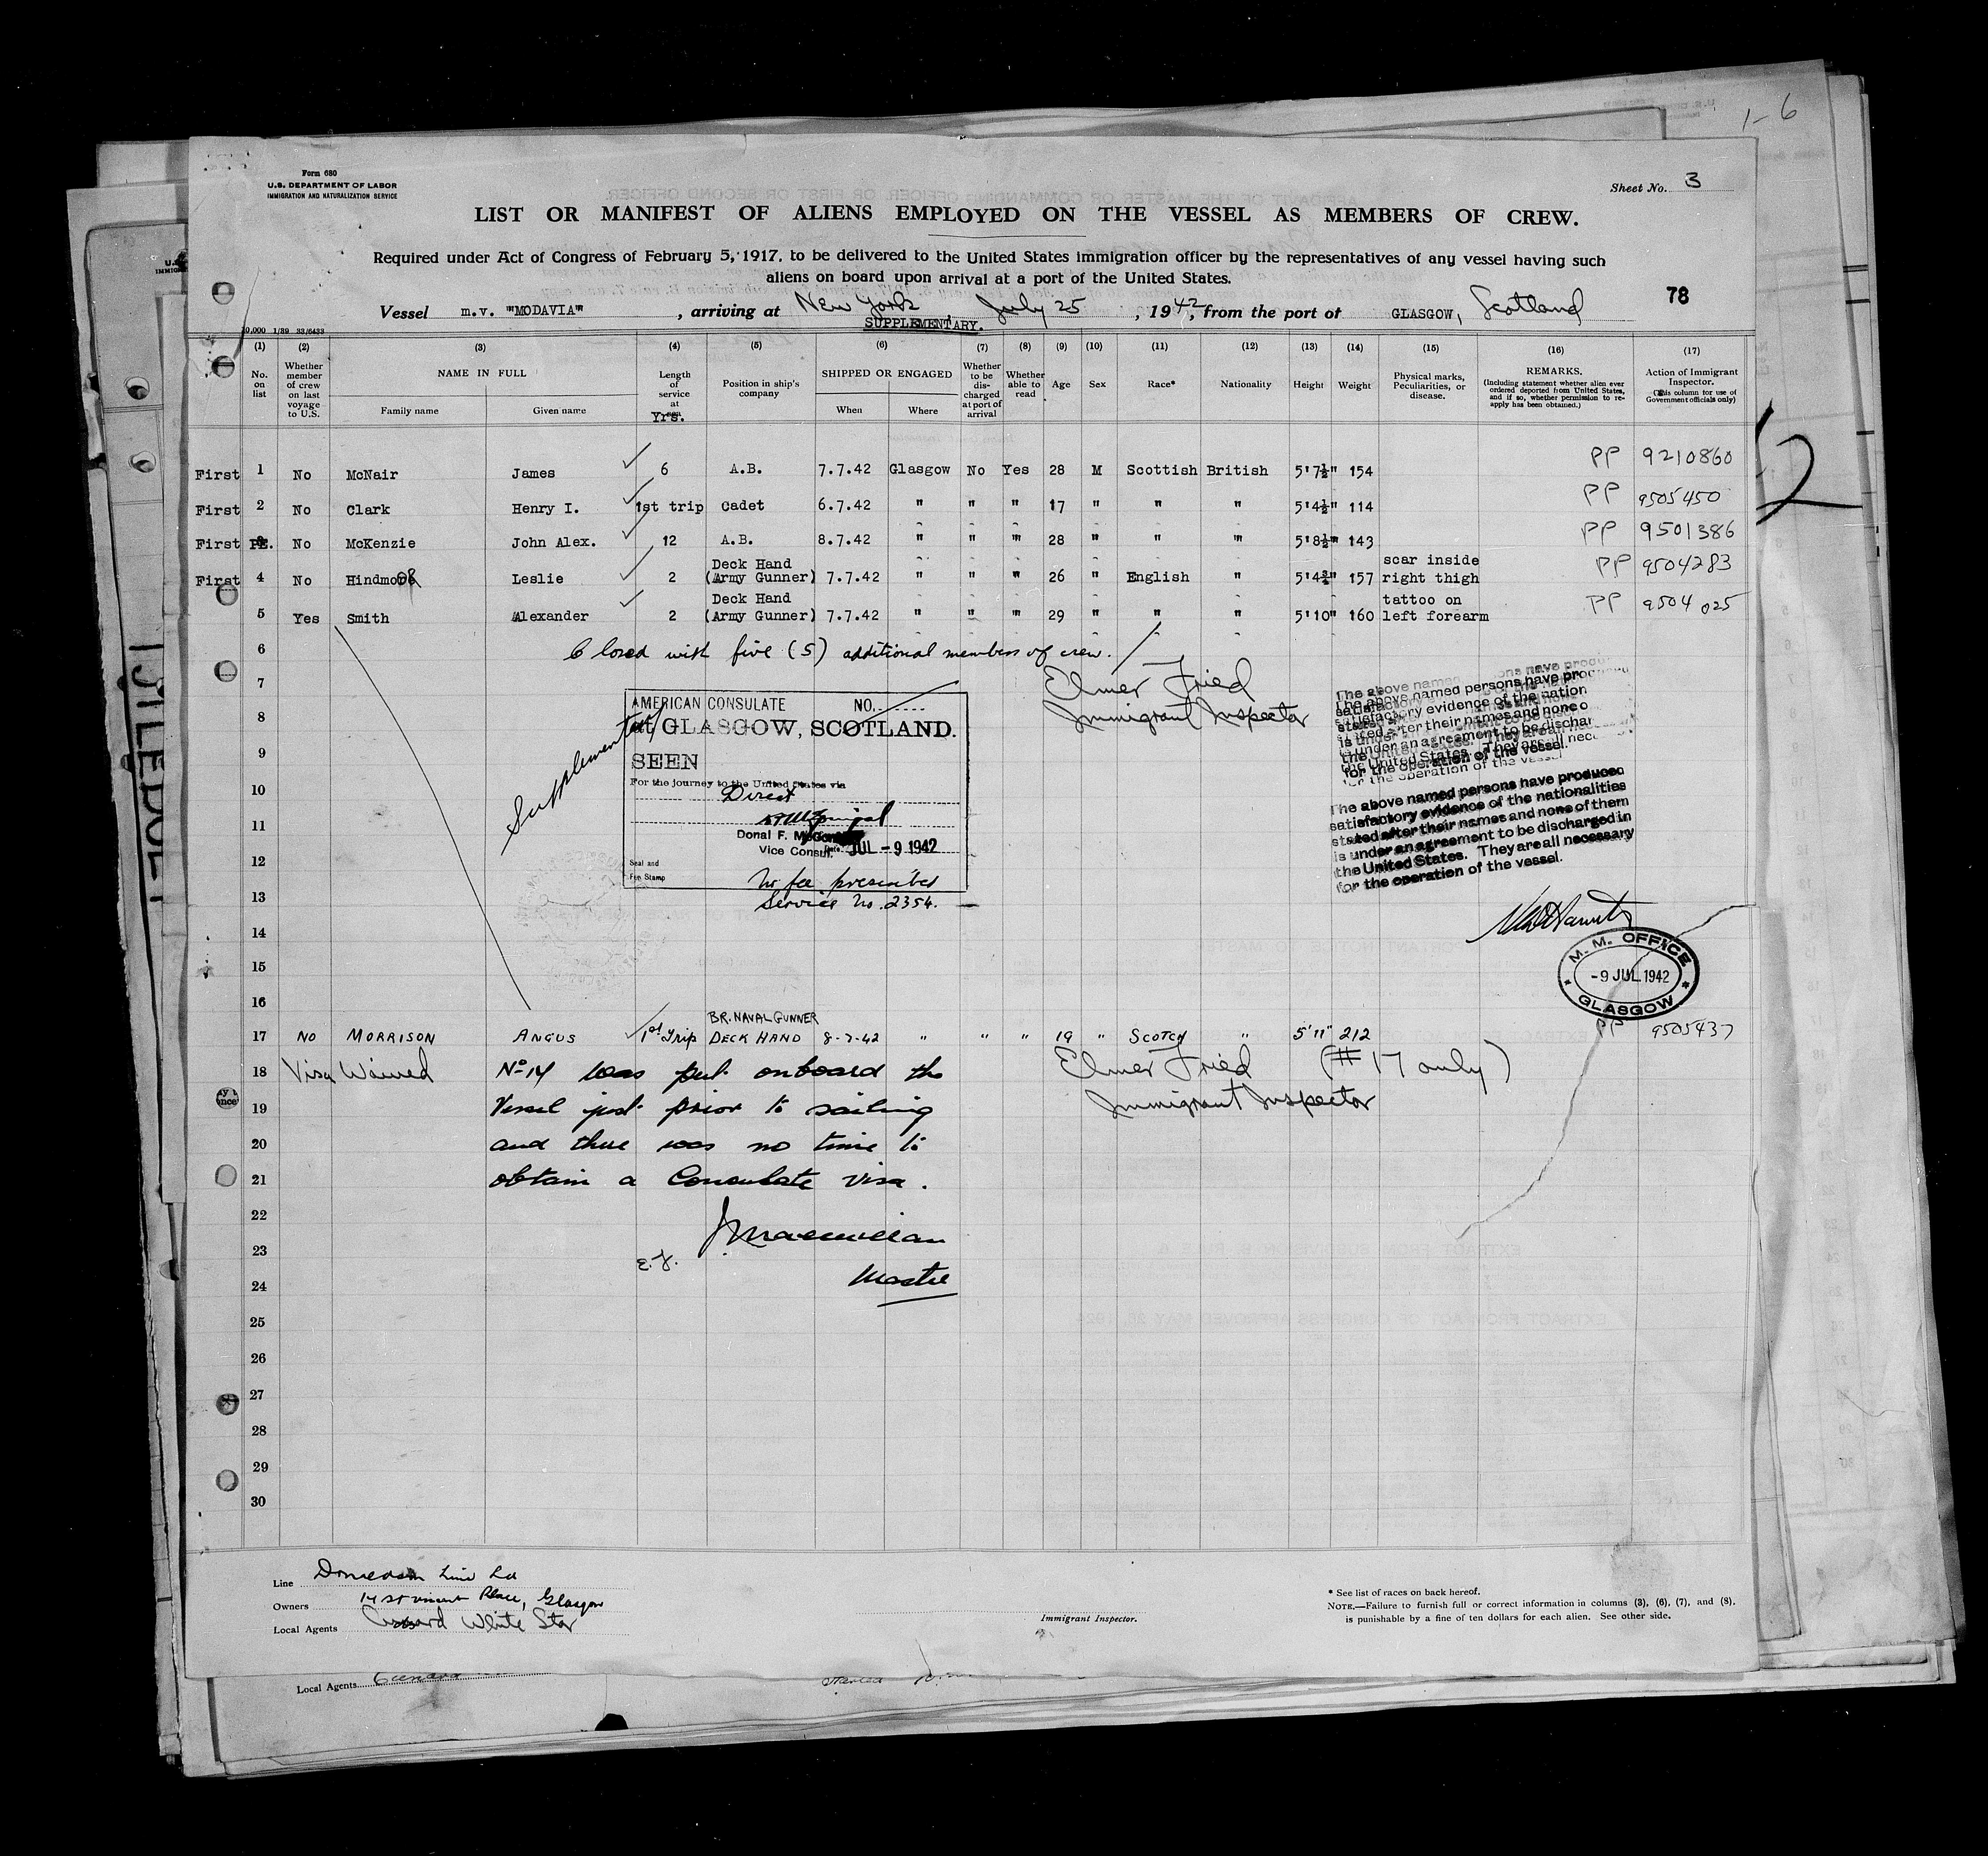 1-6
Form 680
U.S. DEPARTMENT OF LABOR
IMMIGRATION AND NATURALIZATION SERVICE
Sheet No. 3
LIST OR MANIFEST OF ALIENS EMPLOYED ON THE VESSEL AS MEMBERS OF CREW.
Required under Act of Congress of February 5, 1917, to be delivered to the United States immigration officer by the representatives of any vessel having such
aliens on board upon arrival at a port of the United States.
78
Vessel m.v. "MODAVIA", arriving at New York, July 25, 1942, from the port of GLASGOW, Scotland
SUPPLEMENTARY.
10,000 1/39 33/6433
(1) (2) (3) (4) (5) (6) (7) (8) (9) (10) (11) (12) (13) (14) (15) (16) (17)
No. on list
Whether member of crew on last voyage to U.S.
NAME IN FULL
Family name Given name
Length of service at Yrs.
Position in ship's company
SHIPPED OR ENGAGED
When Where
Whether to be discharged at port of arrival
Whether able to read
Age
Sex
Race*
Nationality
Height
Weight
Physical marks, Peculiarities, or disease.
REMARKS.
(Including statement whether alien ever ordered deported from United States, and if so, whether permission to reapply has been obtained.)
Action of Immigrant Inspector.
(This column for use of Government officials only)
First 1 No McNair James 6 A.B. 7.7.42 Glasgow No Yes 28 M Scottish British 5'7½" 154 PP 9210860
First 2 No Clark Henry I. 1st trip Cadet 6.7.42 " " " 17 " " " 5'4½" 114 PP 9505450
First No McKenzie John Alex. 12 A.B. 8.7.42 " " " 28 " " " 5'8½" 143 PP 9501386
Deck Hand scar inside
First 4 No Hindmoor Leslie 2 (Army Gunner) 7.7.42 " " " 26 " English " 5'4¾" 157 right thigh PP 9504283
Deck Hand tattoo on
5 Yes Smith Alexander 2 (Army Gunner) 7.7.42 " " " 29 " " " 5'10" 160 left forearm PP 9504025
6 Closed with five (5) additional members of crew.
7 Elmer Fried
Immigrant Inspector
8
9
10
11
12
13
14
15
16
Supplemental
AMERICAN CONSULATE NO.
GLASGOW, SCOTLAND.
SEEN
For the journey to the United States via
Direct
Donal F.
Vice Consul. Date JUL -9 1942
Seal and
Fee Stamp
No fee prescribed
Service No. 2354.
The above named persons have produced
satisfactory evidence of the nationalities
stated after their names and none of them
is under an agreement to be discharged in
the United States. They are all necessary
for the operation of the vessel.
M. M. OFFICE
-9 JUL 1942
GLASGOW
BR. NAVAL GUNNER
17 NO MORRISON ANGUS 1st Trip DECK HAND 8-7-42 " " " 19 " SCOTCH " 5'11" 212 PP 9505437
18 Visa Waived No 14 was put onboard the Elmer Fried (#17 only)
19 Vessel just prior to sailing Immigrant Inspector
20 and there was no time to
21 obtain a Consulate visa.
22 J Macmillan
23 E.F.
24 Master
25
26
27
28
29
30
Line Donaldson Line Ld
Owners 14 St Vincent Place, Glasgow
Local Agents Cunard White Star
Immigrant Inspector.
* See list of races on back hereof.
NOTE.—Failure to furnish full or correct information in columns (3), (6), (7), and (8),
is punishable by a fine of ten dollars for each alien. See other side.
Local Agents